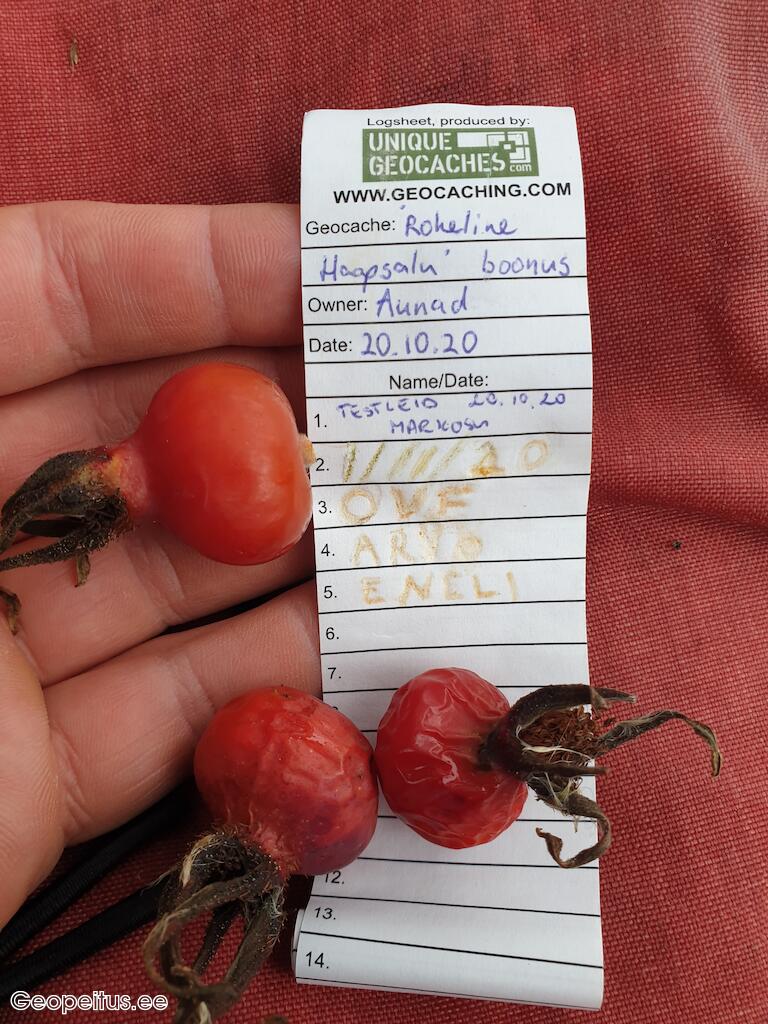 Logsheet, produced by:
UNIQUE
GEOCACHES.com
WWW.GEOCACHING.COM
Geocache: 'Roheline
Haapsalu' boonus
Owner: Aunad
Date: 20.10.20
Name/Date:
1. TESTLEID 20.10.20
MARKOSU
2. 1/11/20
3. OVE
4. ARVO
5. ENELI
6.
7.
12.
13.
14.
Geopeitus.ee